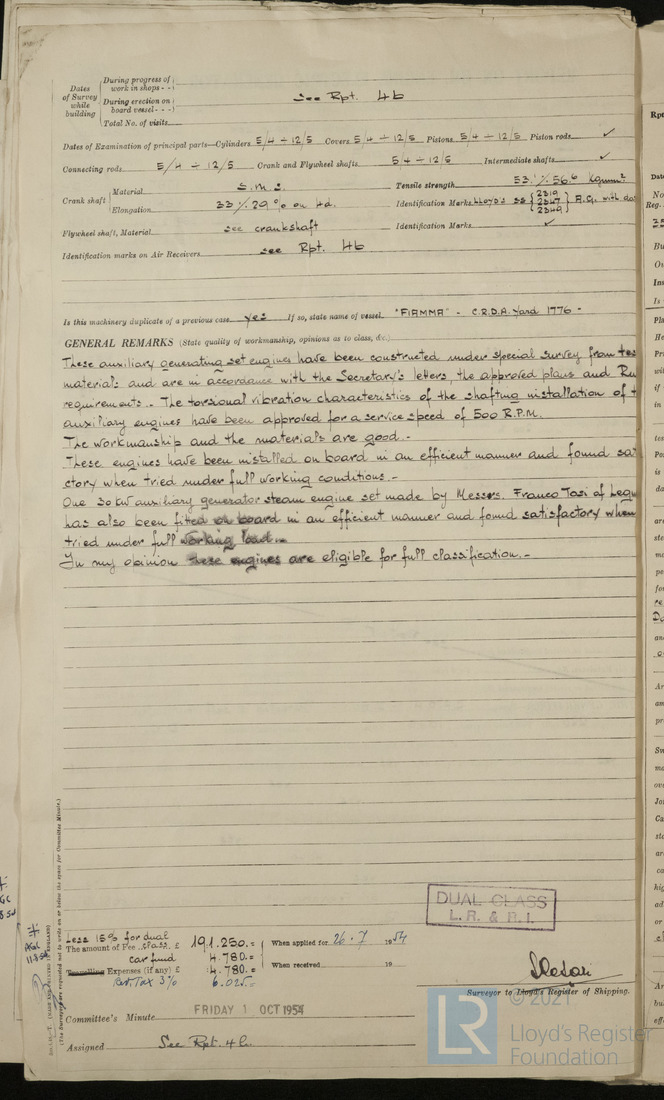 Dates of Survey while building
During progress of work in shops - -
During erection on board vessel - - -
Total No. of visits
see Rpt. 4b
Dates of Examination of principal parts—Cylinders 5/4 ÷ 12/5 Covers 5/4 ÷ 12/5 Pistons 5/4 ÷ 12/5 Piston rods ✓
Connecting rods 5/4 ÷ 12/5 Crank and Flywheel shafts 5/4 ÷ 12/5 Intermediate shafts ✓
Crank shaft { Material S.M.S. Tensile strength 53.1/56.6 Kg/mm²
Elongation 33%/29% on 4d. Identification Marks LLOYD'S { 2319 2347 2349 } A.G. with
Flywheel shaft, Material see crankshaft Identification Marks ✓
Identification marks on Air Receivers see Rpt. 4b
Is this machinery duplicate of a previous case yes If so, state name of vessel "FIAMMA" - C.R.D.A. Yard 1776 -
GENERAL REMARKS (State quality of workmanship, opinions as to class, &c.)
These auxiliary generating set engines have been constructed under special survey from
materials and are in accordance with the Secretary's letters, the approved plans and
requirements.- The torsional vibration characteristics of the shafting installation of
auxiliary engines have been approved for a service speed of 500 R.P.M.
The workmanship and the materials are good.-
These engines have been installed on board in an efficient manner and found
ctory when tried under full working conditions.-
One 30 kW auxiliary generator steam engine set made by Messrs. Franco Tosi of
has also been fitted on board in an efficient manner and found satisfactory when
tried under full working load.-
In my opinion these engines are eligible for full classification.-
DUAL CLASS
L.R. & R.I.
Less 15% for dual
The amount of Fee class £ 191.250.= When applied for 26.7 1954
car fund 4.780.=
Travelling Expenses (if any) £ 4.780.= When received 19
Rev. Tax 3% 6.025.=
Surveyor to Lloyd's Register of Shipping.
Committee's Minute FRIDAY 1 OCT 1954
Assigned See Rpt. 4b.
(The Surveyors are requested not to write on or below the space for Committee Minute.)
LR © 2021
Lloyd's Register
Foundation